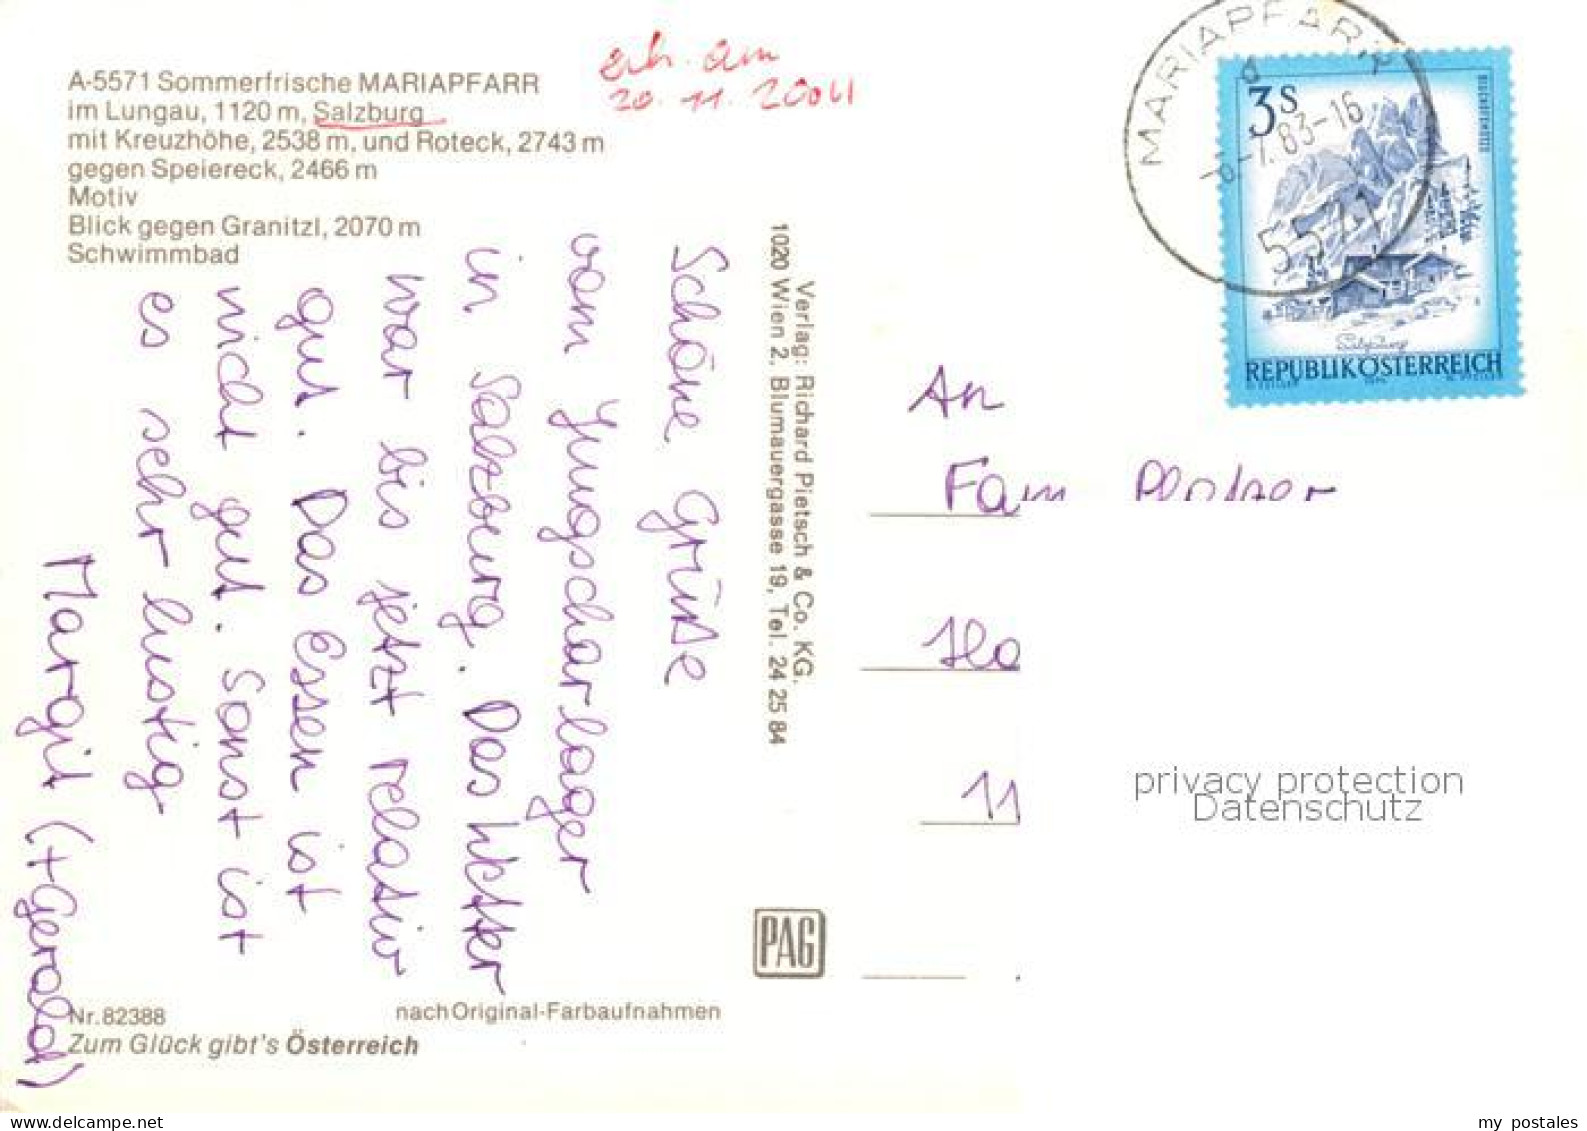 A-5571 Sommerfrische MARIAPFARR
im Lungau, 1120 m, Salzburg
mit Kreuzhöhe, 2538 m, und Roteck, 2743 m
gegen Speiereck, 2466 m
Motiv
Blick gegen Granitzl, 2070 m
Schwimmbad
erh. am
20. 11. 2004
MARIAPFARR
-7.83-16
5571
3S
Salzburg
REPUBLIK ÖSTERREICH
Schöne Grüße
vom Jungscharlager
in Salzburg. Das Wetter
war bis jetzt relativ
gut. Das Essen ist
nicht gut. Sonst ist
es sehr lustig
Margit (+Gerald)
Verlag: Richard Pietsch & Co. KG.
1020 Wien 2, Blumauergasse 19, Tel. 24 25 84
An
Fam
11
PAG
privacy protection
Datenschutz
Nr. 82388
nach Original-Farbaufnahmen
Zum Glück gibt's Österreich
www.delcampe.net
my_postales